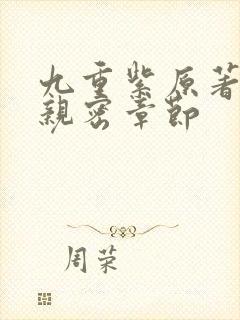 九重紫原著
親密章節
周荣